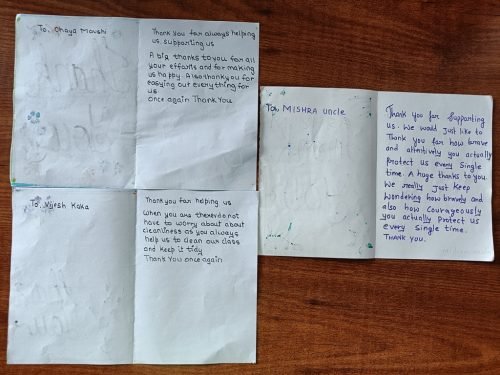 To, Chaya Maushi
Thank you for always helping
us, supporting us
A big thanks to you for all
your efforts and for making
us happy. Also thankyou for
easying out everything for
us
once again Thank You
To, Nijesh Kaka
Thank you for helping us
When you are there do not
have to worry about about
cleanliness as you always
help us to clean our class
and keep it tidy
Thank You once again
To, MISHRA uncle
Thank you for supporting
us. We would just like to
Thank you for how brave
and attentively you actually
protect us every single
time. A huge thanks to you.
We really just keep
wondering how bravely and
also how courageously
you actually protect us
every single time.
THANK YOU.